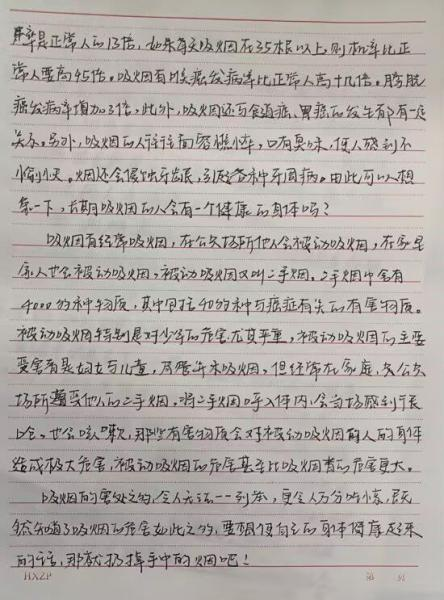 病率是正常人的13倍，如果每天吸烟在35根以上，则机率比正
常人要高45倍。吸烟者喉癌发病率比正常人高十几倍。膀胱
癌发病率增加3倍，此外，吸烟还与食道癌、胃癌的发生都有一定
关系。另外，吸烟的人往往面容憔悴，口有臭味，使人感到不
愉快。烟还会侵蚀牙齿，引起各种牙周病。由此可以想
象一下，长期吸烟的人会有一个健康的身体吗？
吸烟者经常吸烟，在公众场所他人会被动吸烟，在家里
家人也会被动吸烟，被动吸烟又叫二手烟。二手烟中含有
4000多种物质，其中包括40多种与癌症有关的有害物质。
被动吸烟特别是对少年的危害尤其严重，被动吸烟的主要
受害者是妇女与儿童，尽管并未吸烟，但经常在家庭、公众
场所遭受他人的二手烟。将二手烟呼入体内，会当场感到很
呛。也会咳嗽，那些有害物质会对被动吸烟的人的身体
造成极大危害，被动吸烟的危害甚至比吸烟者的危害更大。
吸烟的害处之多，令人无法一一列举，更令人万分惊慌，既
然知道了吸烟的危害如此之多，要想使自己的身体健康起来
的话，那就扔掉手中的烟吧！
HXZP 第 页